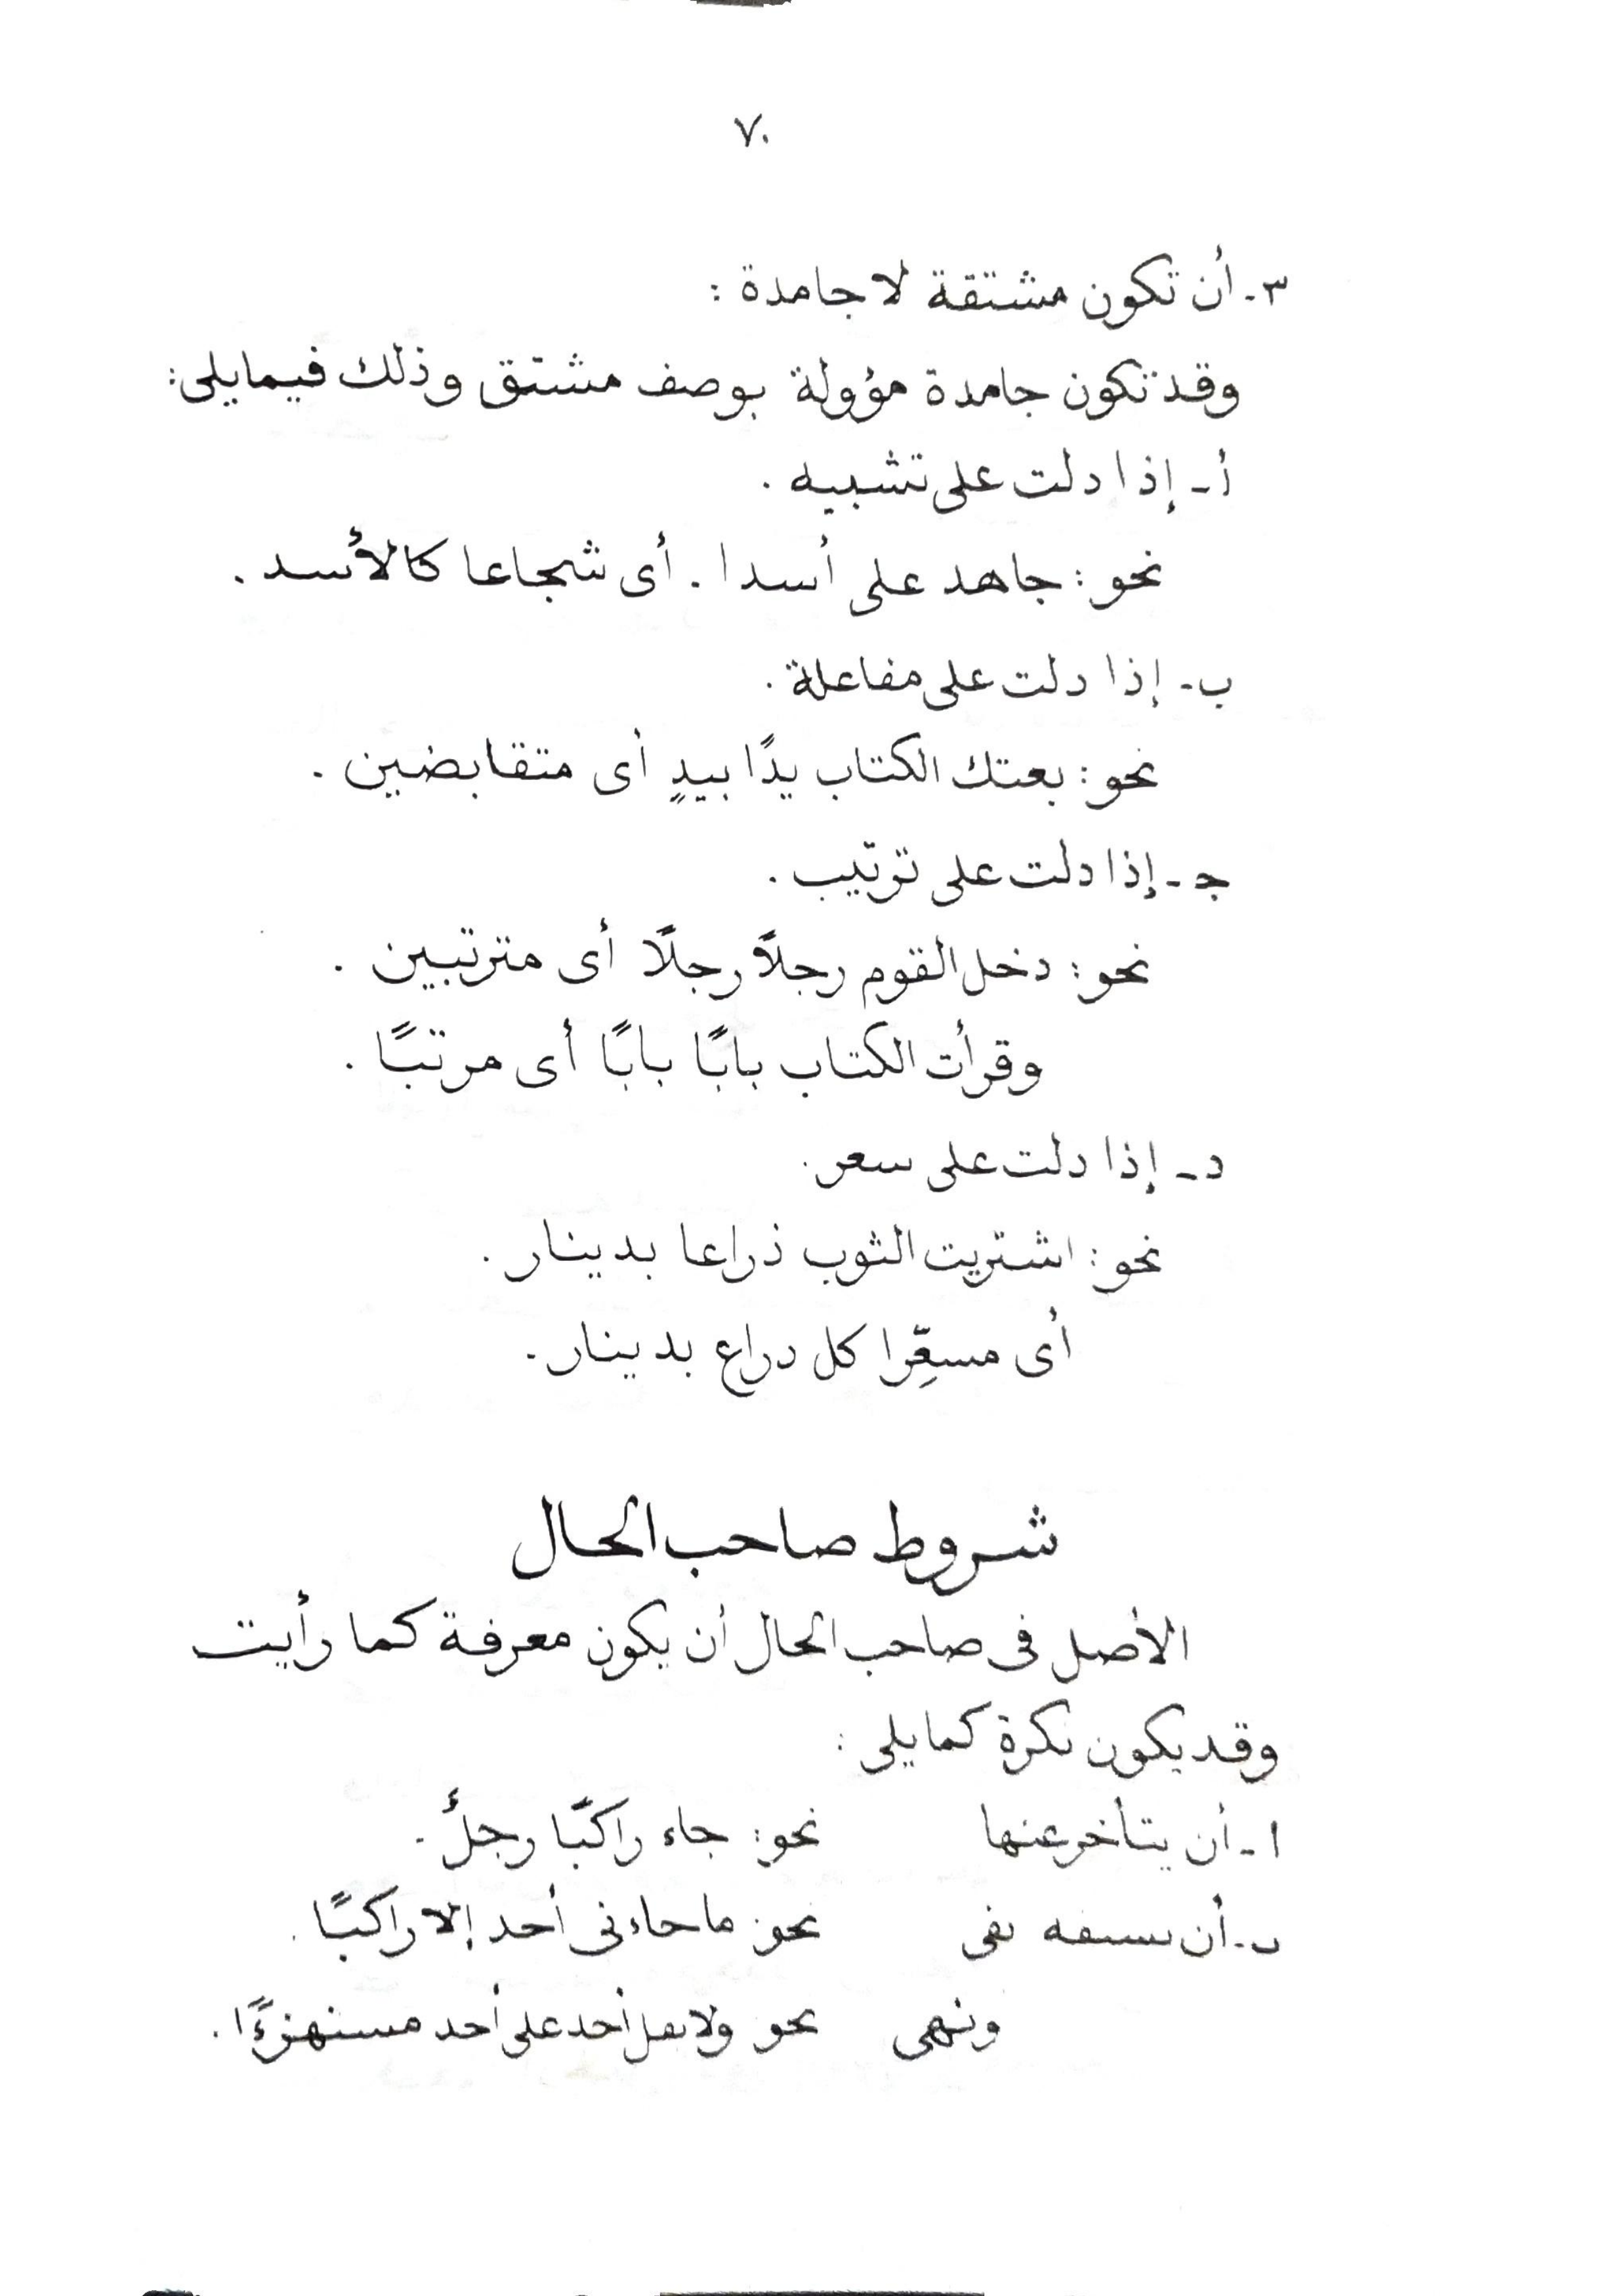 ٧٠
٣ـ أن تكون مشتقة لا جامدة :
وقد تكون جامدة مؤولة بوصف مشتق وذلك فيمايلى:
أ ـ إذا دلت على تشبيه .
نحو: جاهد على أسدا . أى شجاعا كالأسد .
ب ـ إذا دلت على مفاعلة .
نحو: بعتك الكتاب يدًا بيدٍ أى متقابضين .
جـ ـ إذا دلت على ترتيب .
نحو: دخل القوم رجلًا رجلًا أى مترتبين .
وقرأت الكتاب بابًا بابًا أى مرتبًا .
د ـ إذا دلت على سعر .
نحو: اشتريت الثوب ذراعا بدينار .
أى مسعِّرا كل دراع بدينار .
شروط صاحب الحال
الأصل فى صاحب الحال أن يكون معرفة كما رأيت
وقد يكون نكرة كمايلى :
ا ـ أن يتأخر عنها نحو: جاء راكبًا رجلٌ .
ب ـ أن يسبقه نفى نحو: ما جاءنى أحد إلا راكبًا .
ونهى نحو ولا يقل أحد على أحد مستهزءًا .